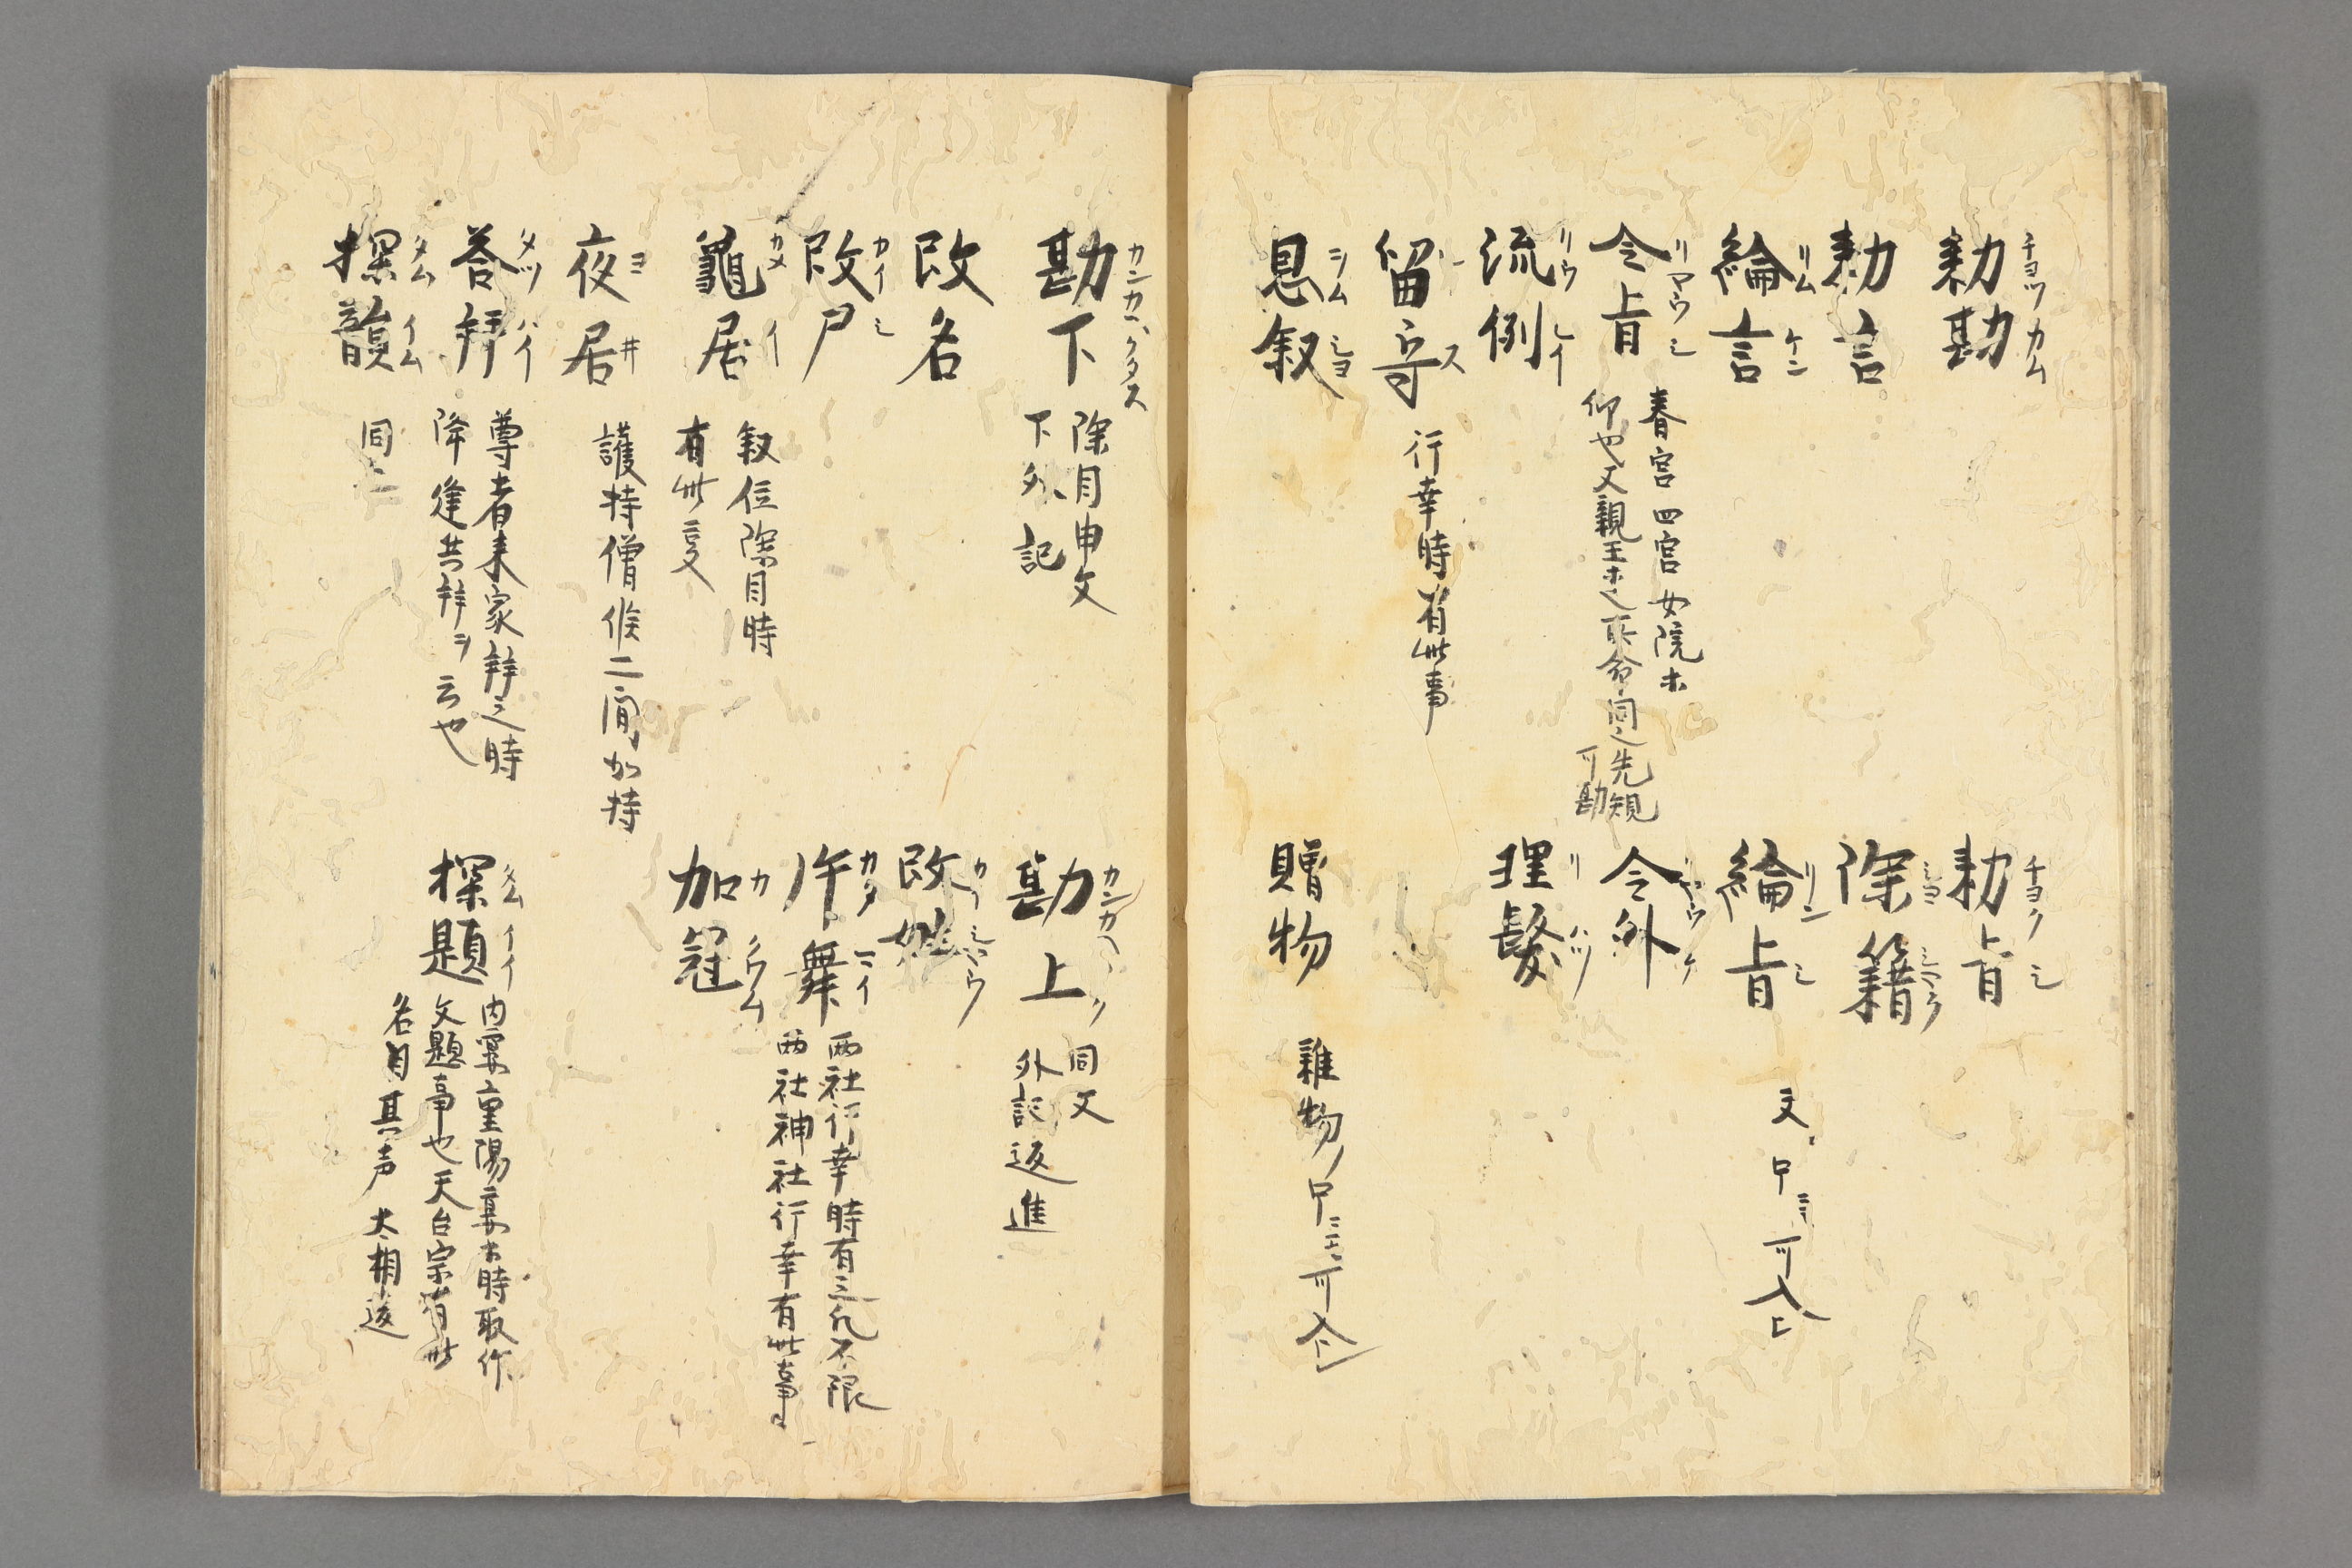 勅勘 チヨツカム
勅旨 チヨクシ
勅言
除籍 シヨシヤク
綸言 リムケン
綸旨 リンシ
又中ニ可入上
令旨 リヤウシ
春宮四宮女院ホ
仰也又親王ホ之所命同之先規
可勘
令外 リヤウケ
流例 リウレイ
理髪 リハツ
留守 ス
行幸時有此事
恩叙 ヲムシヨ
贈物
雑物ノ中ニ可入
勘下 カンカヘクタス
除目申文
下外記
勘上 カンカヘ
同文
外記返進
改名
改姓 カイシヤウ
改尸 カイシ
片舞 カタマイ
両社行幸時有之凡不限
両社神社行幸有此事
龜居 カメイ
叙位除目時
有此事
加冠 カクワム
夜居 ヨ井
護持僧候二間加持
答拜 タツハイ
尊者来家拜之時
降逢共拜ヲ云也
探韻 タムイム
同ニ
探題 タムイ
内宴重陽宴ホ時取作
文題事也天台宗有此
名目其声大相違